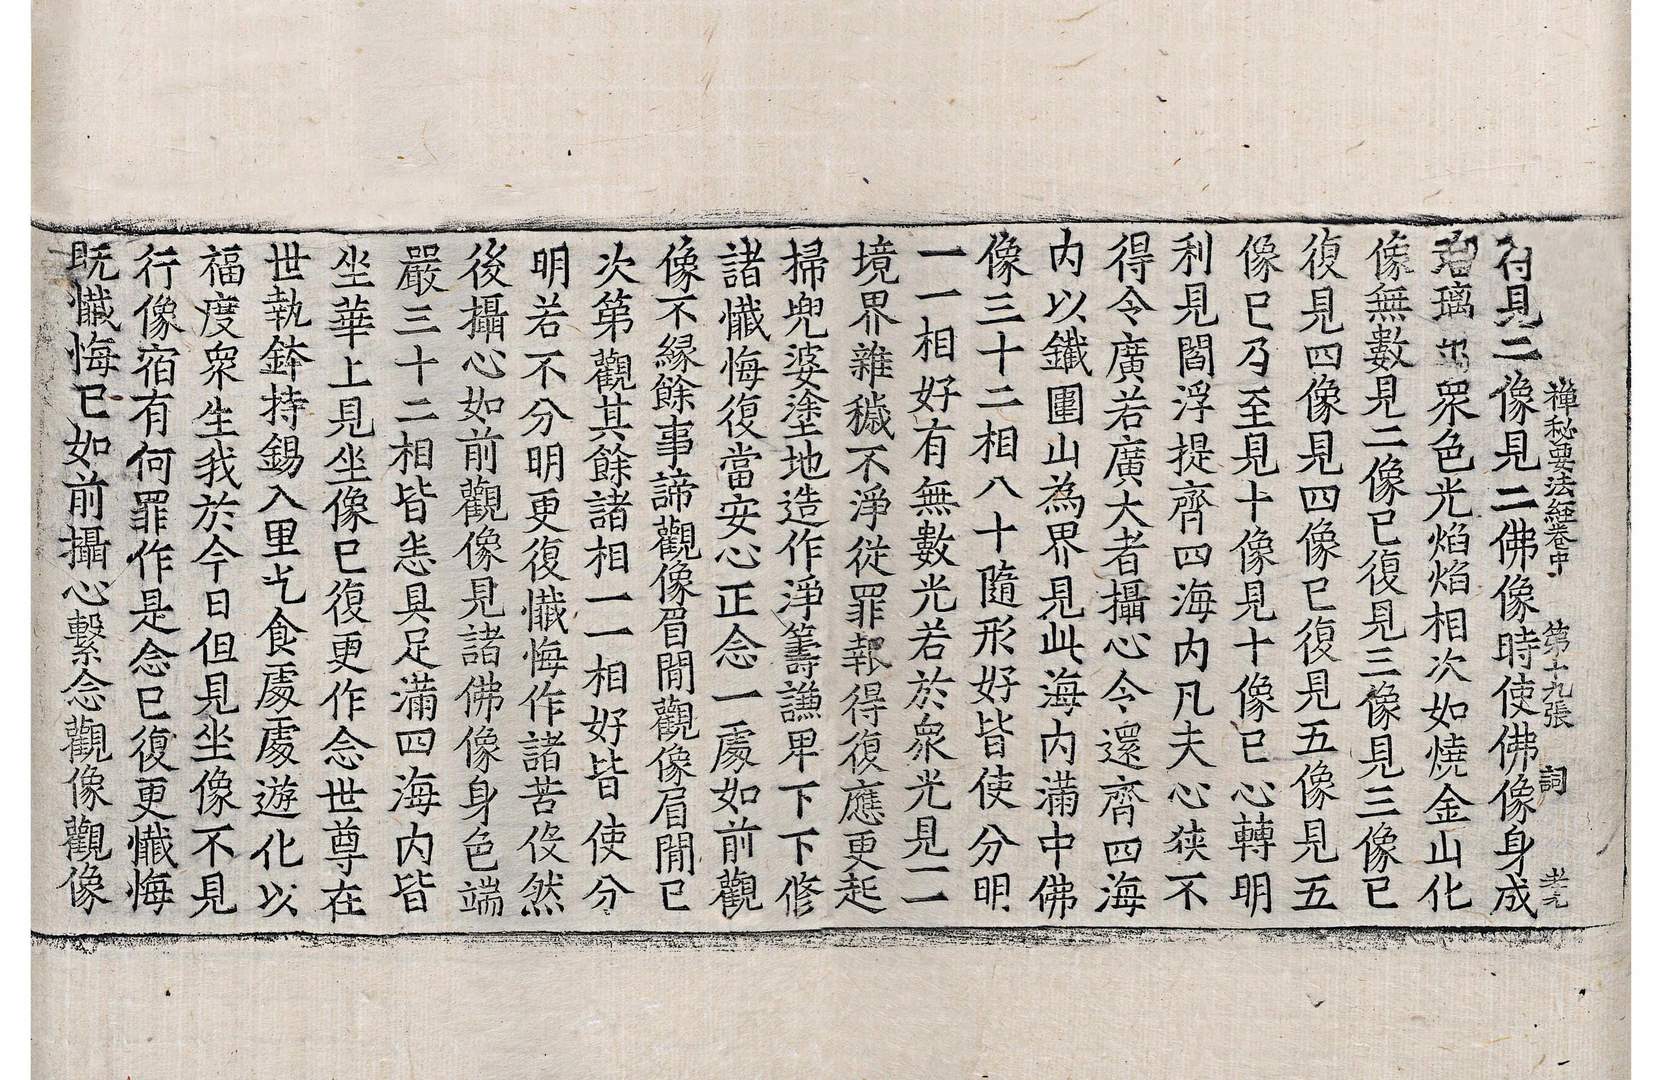 禪秘要法經卷中 第十九張 詞
見二像見二佛像時使佛像身成
璃衆色光焰焰相次如燒金山化
像無數見二像已復見三像見三像已
復見四像見四像已復見五像見五
像已乃至見十像見十像已心轉明
利見閻浮提齊四海内凡夫心狹不
得令廣若廣大者攝心令還齊四海
内以鐵圍山為界見此海内滿中佛
像三十二相八十隨形好皆使分明
一一相好有無數光若於衆光見二
境界雜穢不淨從罪報得復應更起
掃兜婆塗地造作淨籌謙卑下下修
諸懺悔復當安心正念一處如前觀
像不緣餘事諦觀像眉間觀像眉間已
次第觀其餘諸相一一相好皆使分
明若不分明更復懺悔作諸苦役然
後攝心如前觀像見諸佛像身色端
嚴三十二相皆悉具足滿四海内皆
坐華上見坐像已復更作念世尊在
世執鉢持錫入里乞食處處遊化以
福度衆生我於今日但見坐像不見
行像宿有何罪作是念已復更懺悔
既懺悔已如前攝心繫念觀像觀像